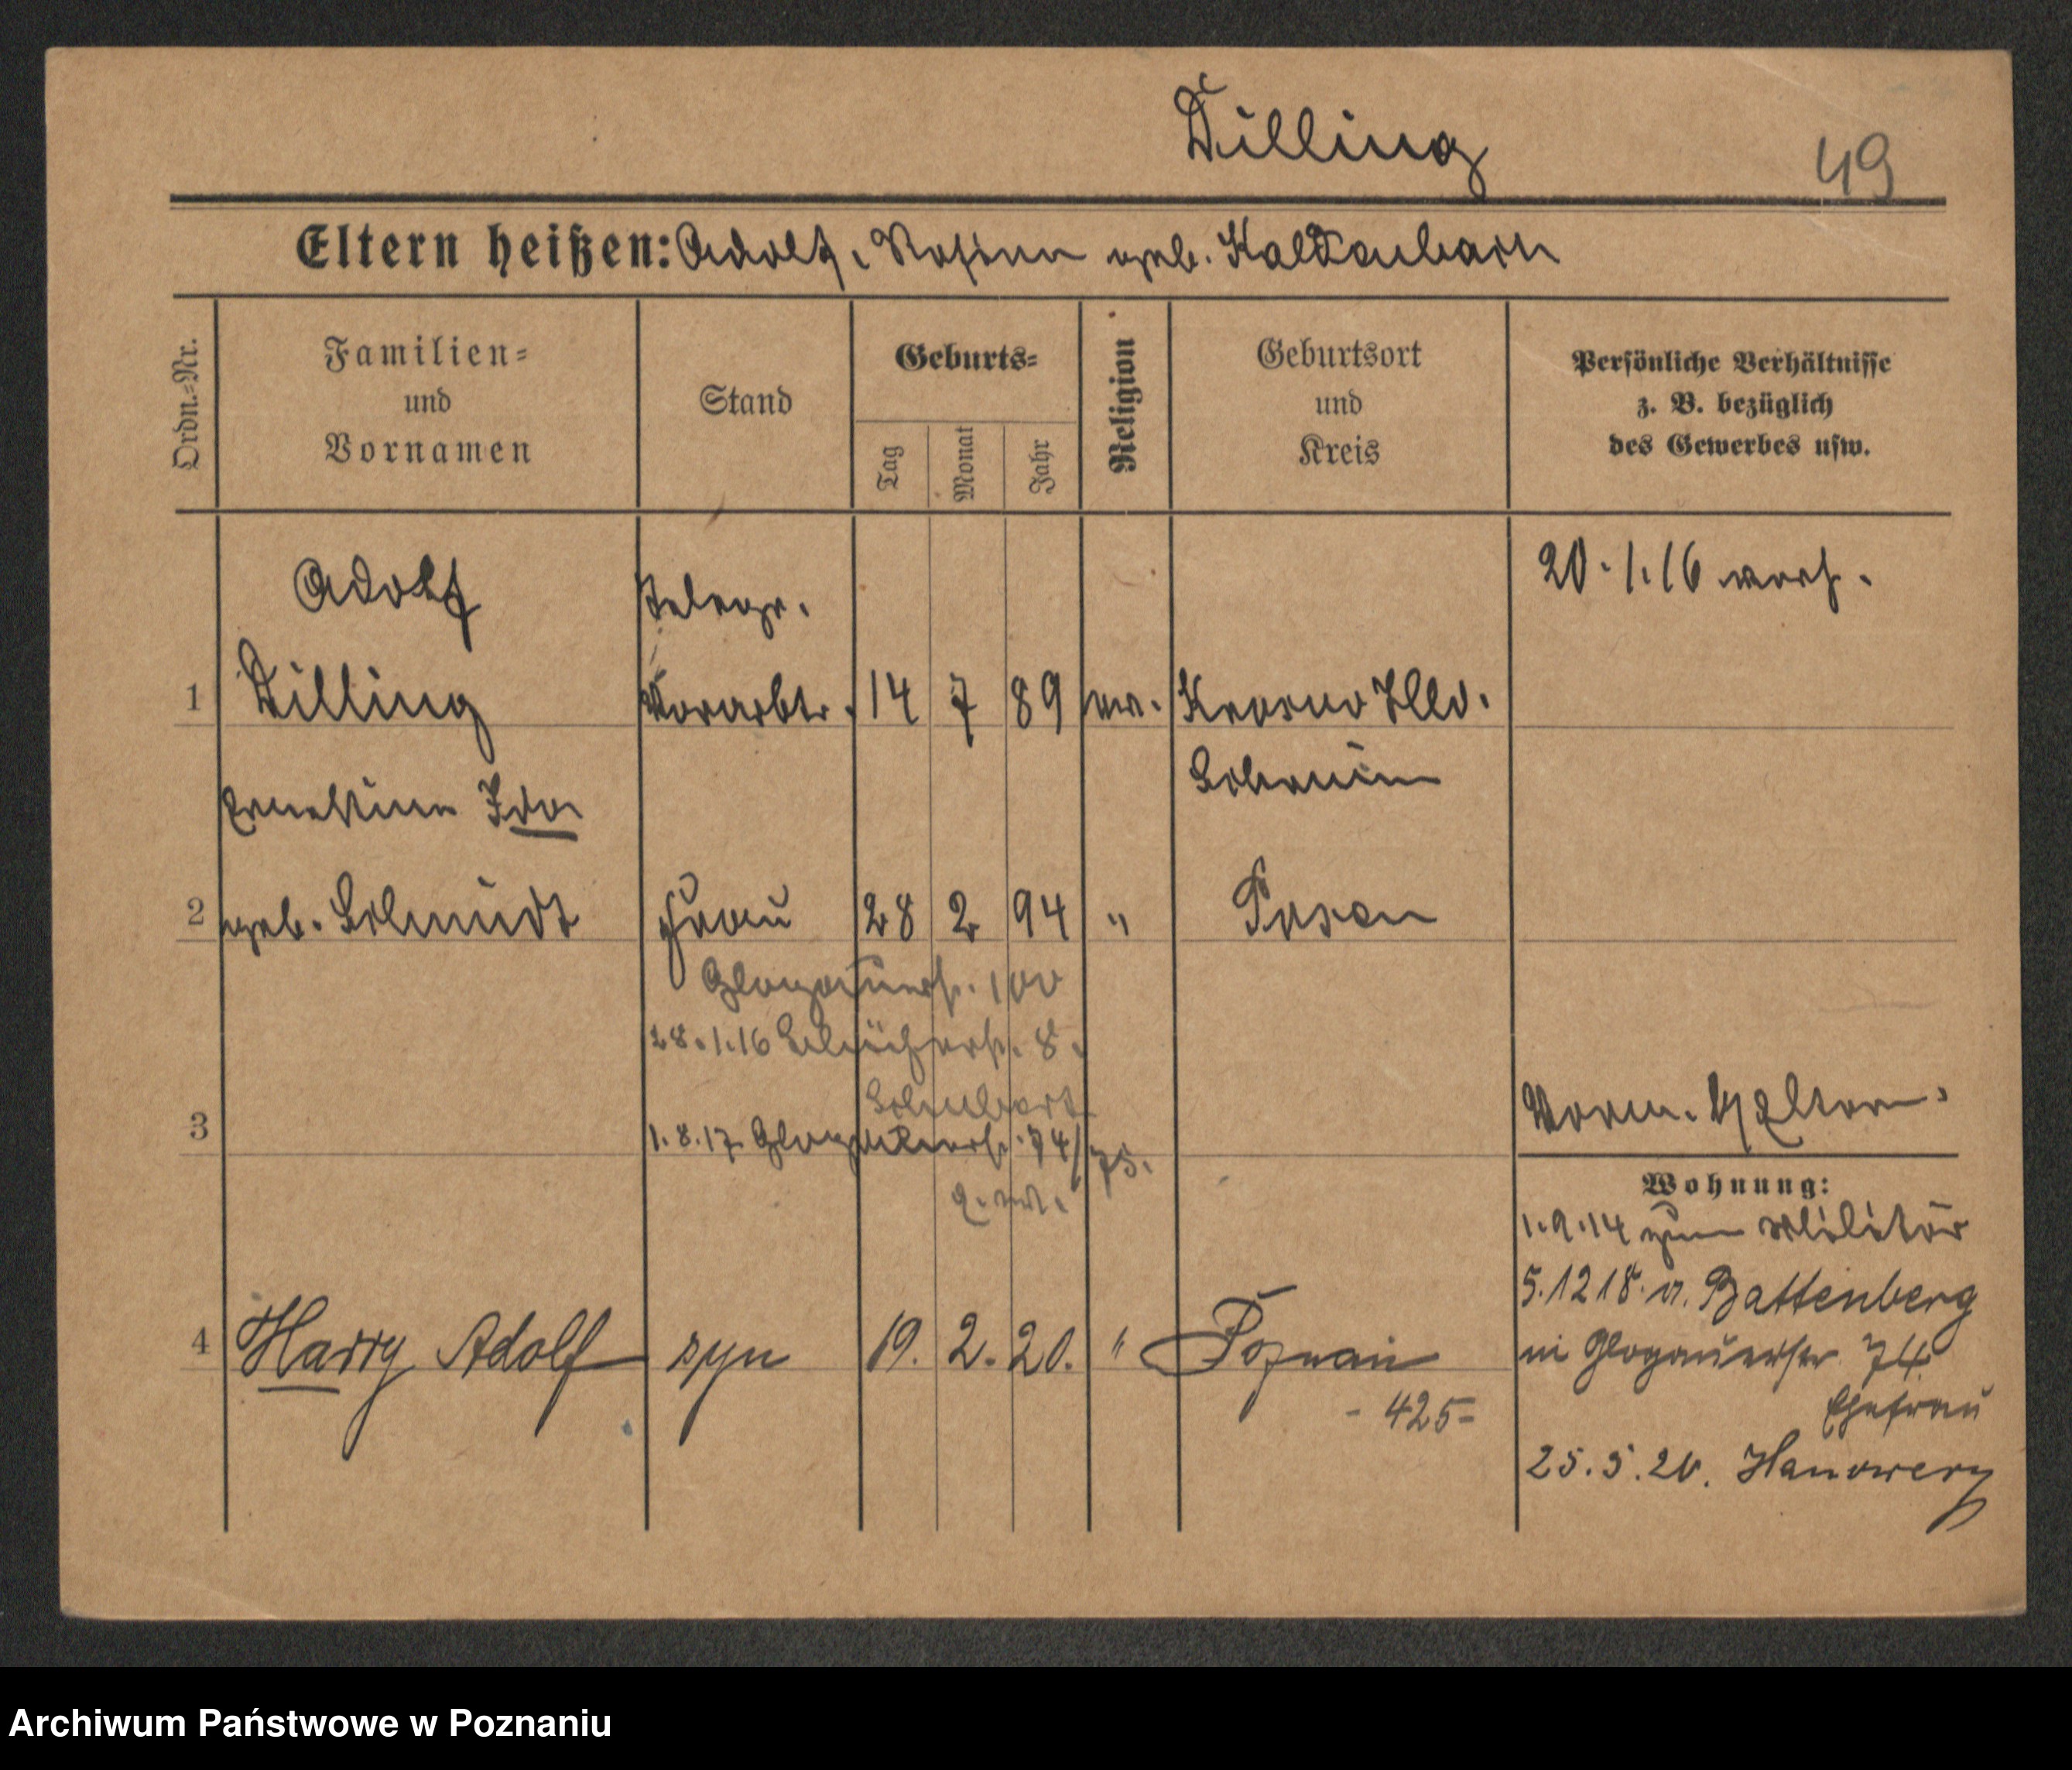 Dilling
49
Eltern heißen: Adolf, Rosina geb. Kaldenbach
Ordn.-Nr.
Familien-
und
Vornamen
Stand
Geburts-
Tag
Monat
Jahr
Religion
Geburtsort
und
Kreis
Persönliche Verhältnisse
z. B. bezüglich
des Gewerbes usw.
20.1.16 verh.
Adolf
Telegr.
1 Dilling Vorarbtr. 14 7 89 ev. Krosno Hld.
Schrimm
Ernestine Ida
2 geb. Schmidt Frau 28 2 94 " Posen
Glogauerstr. 100
28.1.16 8.
Schubert
3 1.8.17 Glogauerstr. 74/75.
Vorm. b/ Eltern.
Wohnung:
1.9.14 zum Militär
5.12 18. v. Battenberg
in Glogauerstr. 74
4 Harry Adolf syn 19. 2. 20. " Poznań
- 425-
Ehefrau
25.5.20. Hanower
Archiwum Państwowe w Poznaniu